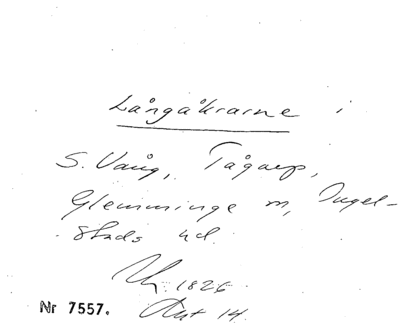 Långåkrarne i
S. Vång, Tågarp,
Glemminge sn, Ingel-
stads hd.
1826
Nr 7557. Akt 14.